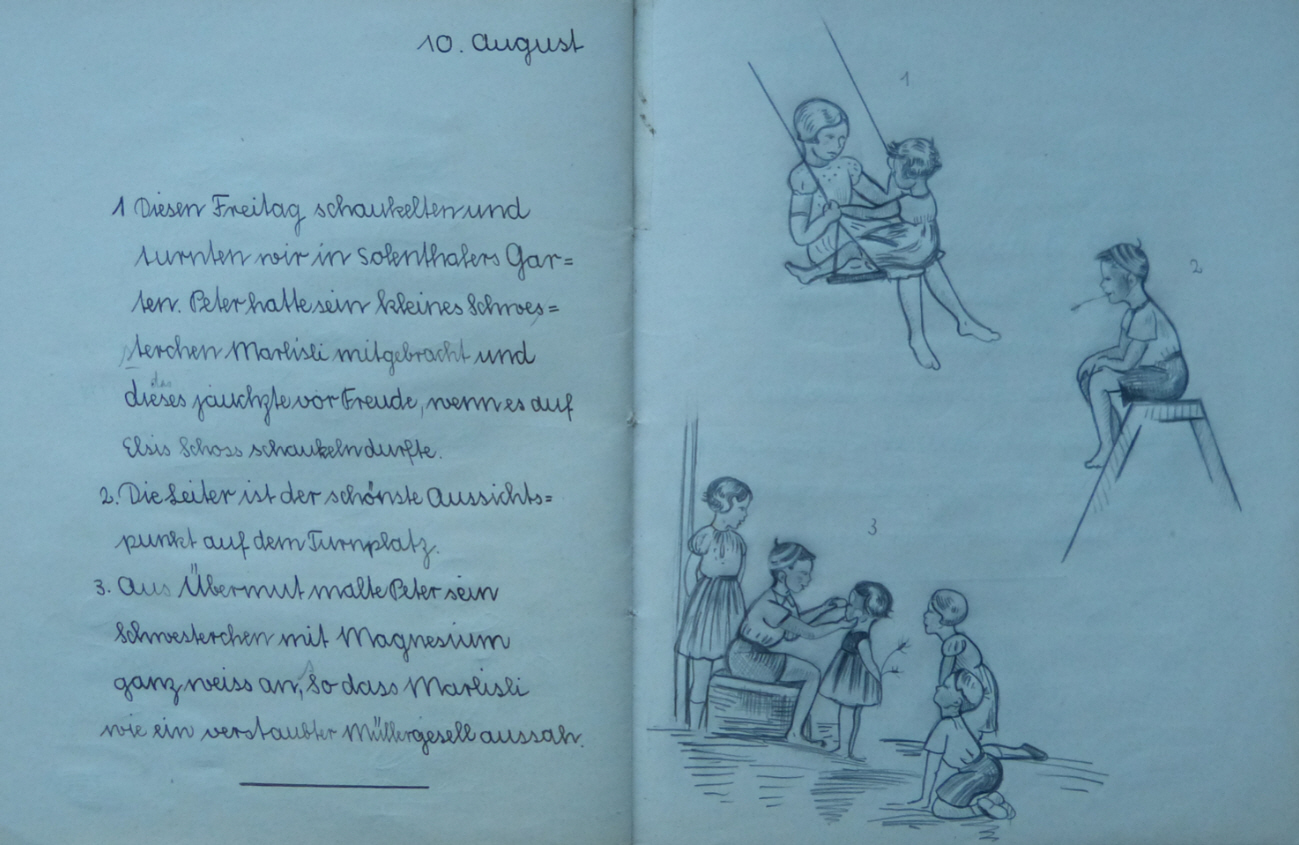 10. August
1 Diesen Freitag schaukelten und
turnten wir in Solenthalers Gar=
ten. Peter hatte sein kleines Schwes=
terchen Marlisli mitgebracht und
des
dieses jauchzte vor Freude, wenn es auf
Elsis Schoss schaukeln durfte.
2. Die Leiter ist der schönste Aussichts=
punkt auf dem Turnplatz.
3. Aus Übermut malte Peter sein
Schwesterchen mit Magnesium
ganz weiss an, so dass Marlisli
wie ein verstaubter Müllergesell aussah.
1
2
3